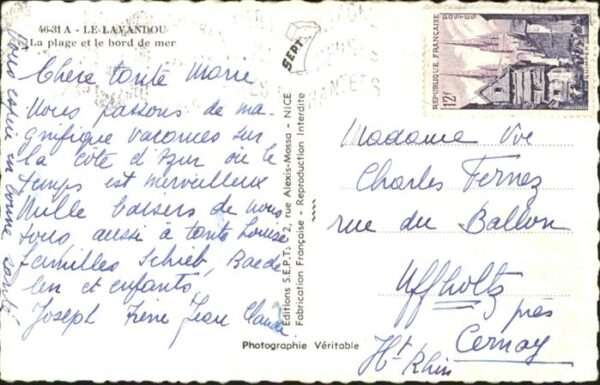 46-31 A - LE LAVANDOU
La plage et le bord de mer
Chère tante Marie
Nous passons de ma-
gnifique vacances sur
la côte d'Azur où le
temps est merveilleux
Mille baisers de nous
tous aussi à tante Louise
familles Schieb, Baede
len et enfants
Joseph Irène Jean Claude
vous êtes en bonne santé
SEPT
Editions S.E.P.T. 2, rue Alexis-Mossa - NICE
Fabrication Française - Reproduction Interdite
Photographie Véritable
REPUBLIQUE FRANÇAISE
POSTES
12F
Madame Vve
Charles Fernez
rue du Ballon
Uffholtz
près
Cernay
Ht Rhin